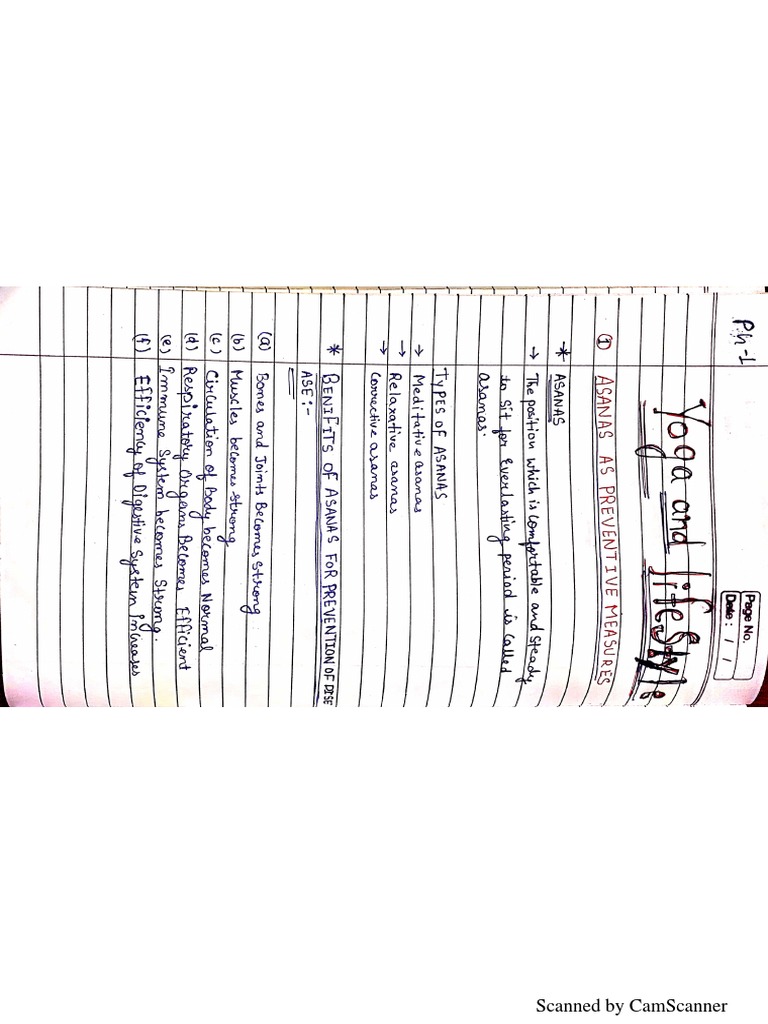 P.h-1
Page No.
Date: / /
Yoga and lifestyle
① ASANAS AS PREVENTIVE MEASURES
* ASANAS
→ The position which is comfortable and steady,
to sit for Everlasting period is called
asanas.
TYPES OF ASANAS
→ Meditative asanas
→ Relaxative asanas
→ Corrective asanas
* BENIFITS OF ASANAS FOR PREVENTION OF DISE
ASE:-
(a) Bones and Joints Becomes Strong
(b) Muscles becomes strong
(c) Circulation of Body becomes Normal
(d) Respiratory Organs Becomes Efficient
(e) Immune System becomes Strong.
(f) Efficiency of Digestive System Increases
Scanned by CamScanner